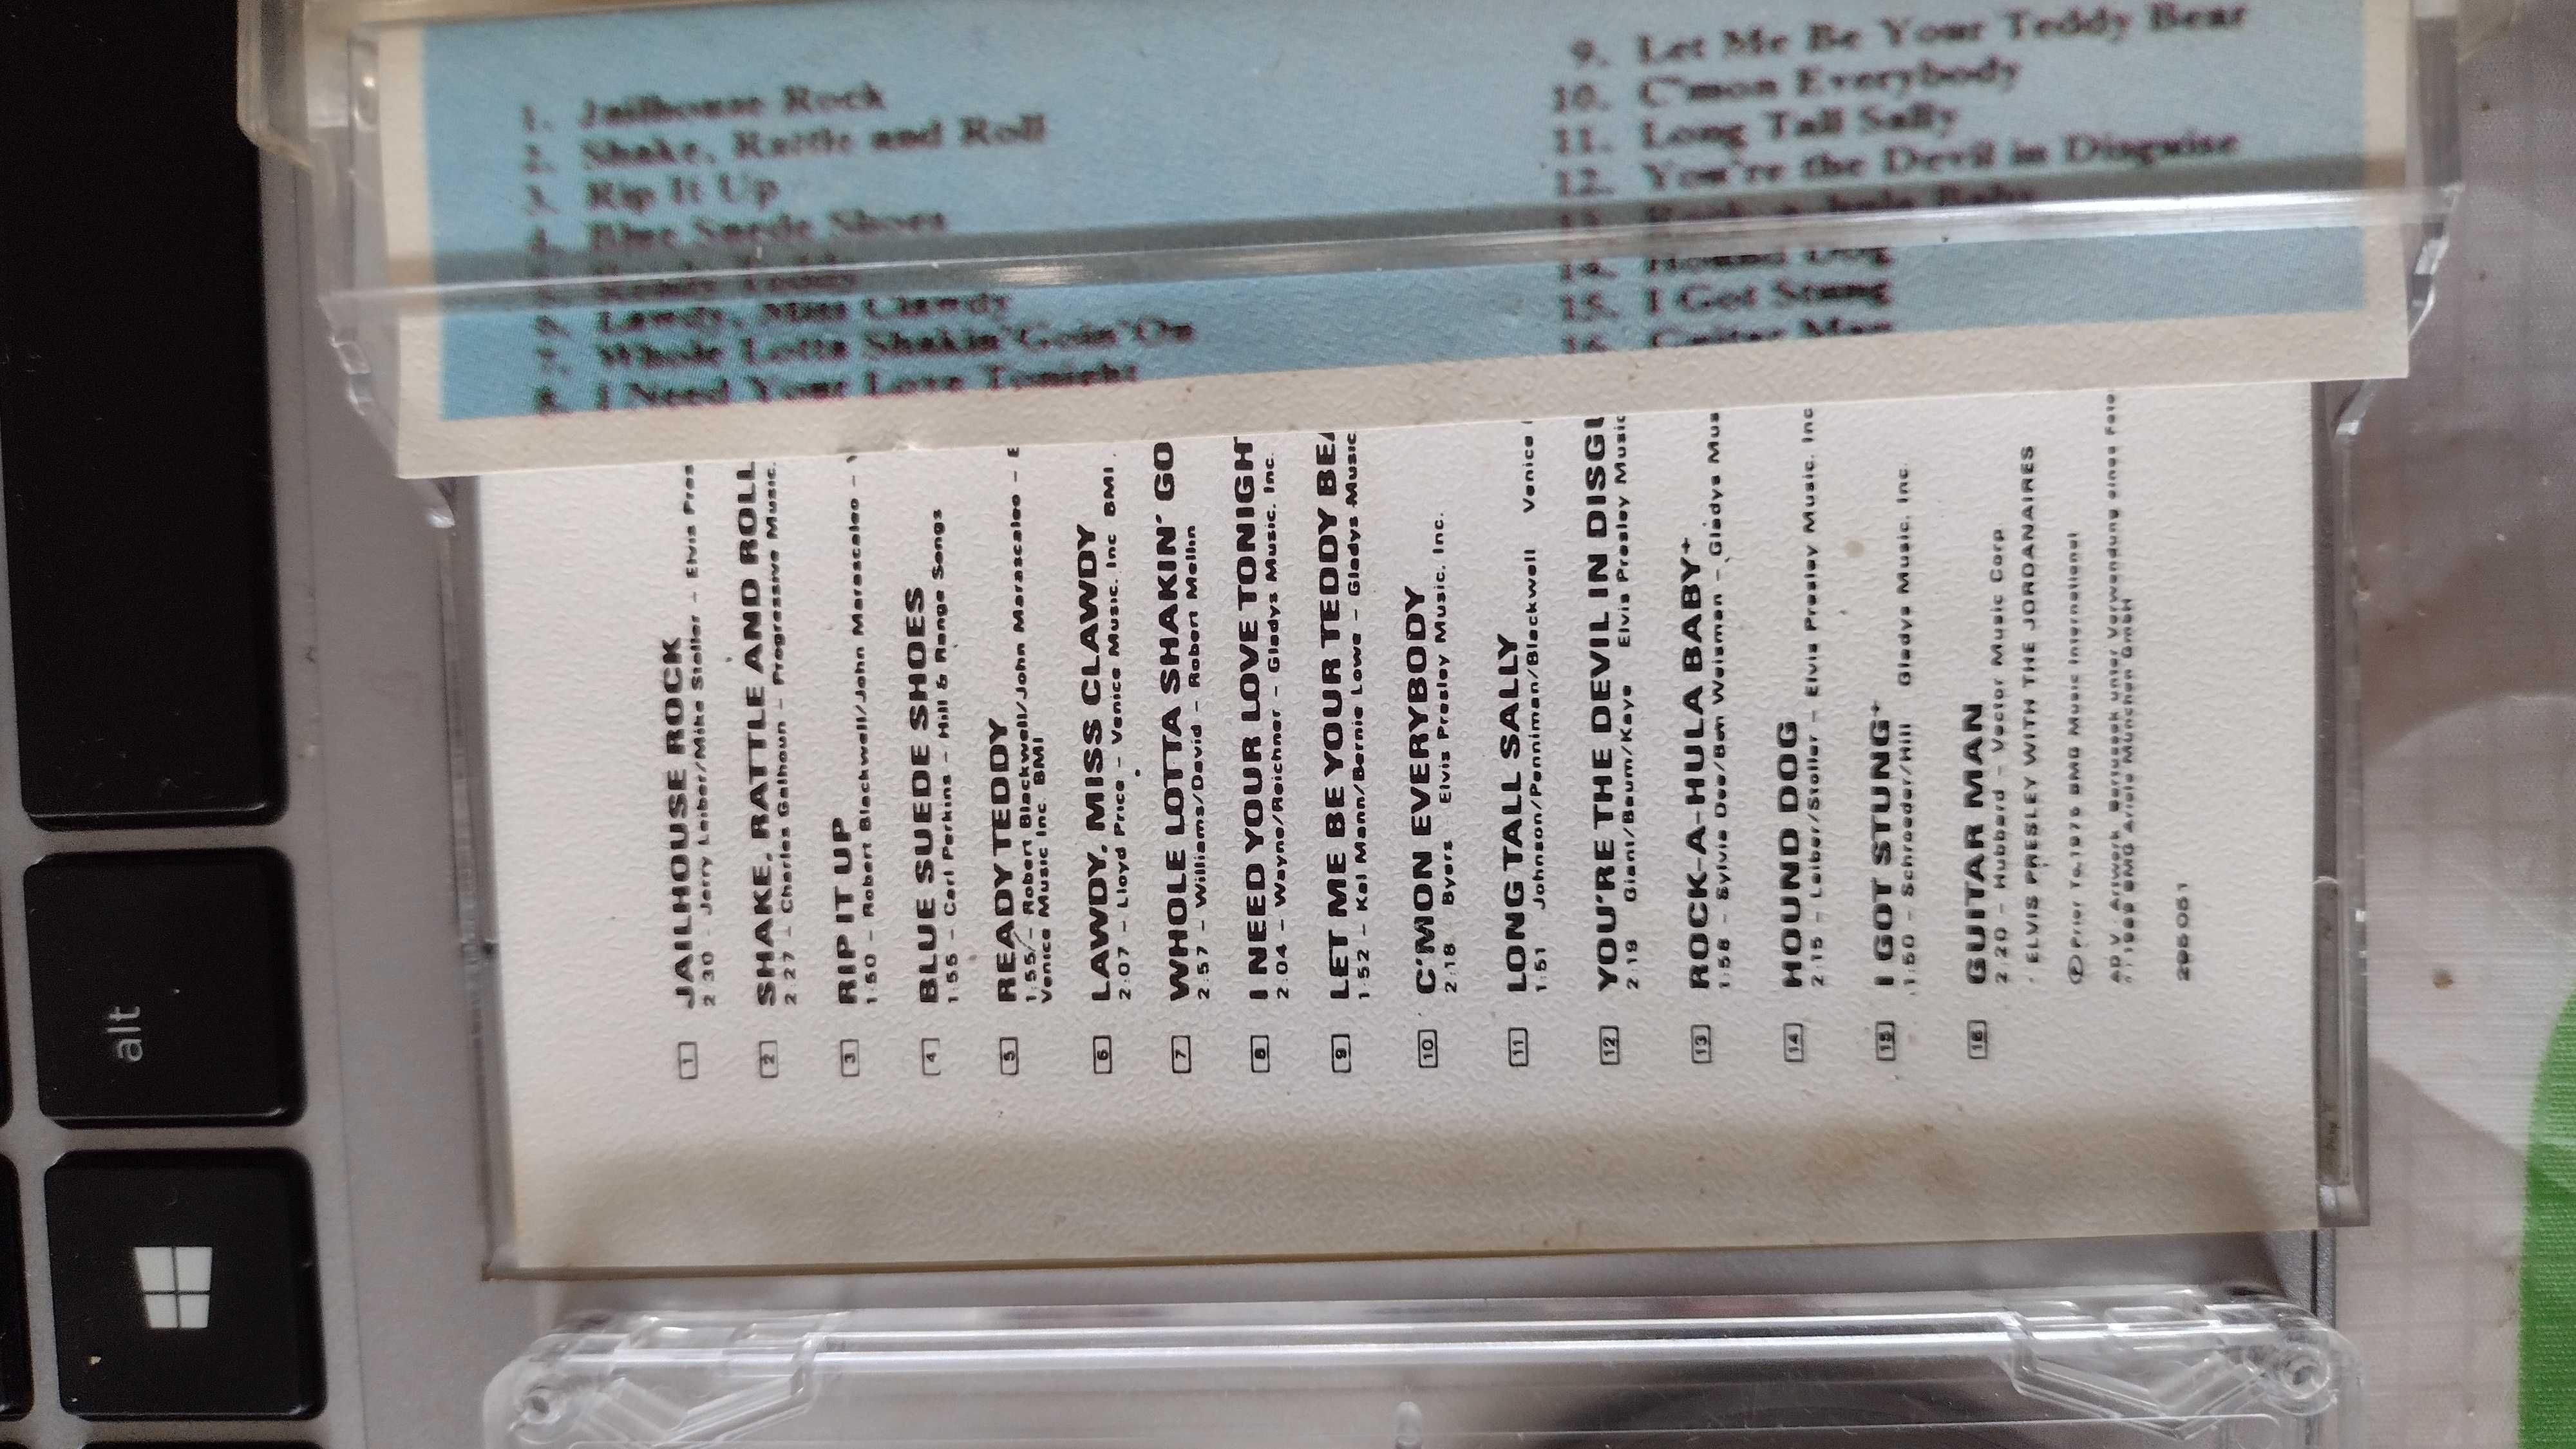 1. Jailhouse Rock
2. Shake, Rattle and Roll
3. Rip It Up
4. Blue Suede Shoes
5. Ready Teddy
6. Lawdy, Miss Clawdy
7. Whole Lotta Shakin' Goin' On
8. I Need Your Love Tonight
9. Let Me Be Your Teddy Bear
10. C'mon Everybody
11. Long Tall Sally
12. You're the Devil in Disguise
13. Rock-a-hula Baby
14. Hound Dog
15. I Got Stung
16. Guitar Man
1 JAILHOUSE ROCK
2:30 - Jerry Leiber/Mike Stoller - Elvis Pres
2 SHAKE, RATTLE AND ROLL
2:27 - Charles Calhoun - Progressive Music.
3 RIP IT UP
1:50 - Robert Blackwell/John Marascalco -
4 BLUE SUEDE SHOES
1:55 - Carl Perkins - Hill & Range Songs
5 READY TEDDY
1:55 - Robert Blackwell/John Marascalco -
Venice Music Inc BMI
6 LAWDY, MISS CLAWDY
2:07 - Lloyd Price - Venice Music. Inc BMI
7 WHOLE LOTTA SHAKIN' GO
2:57 - Williams/David - Robert Mellin
8 I NEED YOUR LOVE TONIGH
2:04 - Wayne/Reichner - Gladys Music. Inc.
9 LET ME BE YOUR TEDDY BEA
1:52 - Kal Mann/Bernie Lowe - Gladys Music
10 C'MON EVERYBODY
2:18 Byers Elvis Presley Music. Inc.
11 LONG TALL SALLY
1:51 Johnson/Penniman/Blackwell Venice
12 YOU'RE THE DEVIL IN DISGU
2:19 Giant/Baum/Kaye Elvis Presley Music
13 ROCK-A-HULA BABY+
1:58 - Sylvia Dee/Ben Weisman - Gladys Mus
14 HOUND DOG
2:15 - Leiber/Stoller - Elvis Presley Music. Inc
15 I GOT STUNG+
1:50 - Schroeder/Hill Gladys Music. Inc.
16 GUITAR MAN
2:20 - Hubbard - Vector Music Corp
ELVIS PRESLEY WITH THE JORDANAIRES
Ⓟ Prior To 1976 BMG Music International
AD.V. Artwork Bariussek unter Verwendung eines Foto
BMG Ariola München GmbH
295051
alt